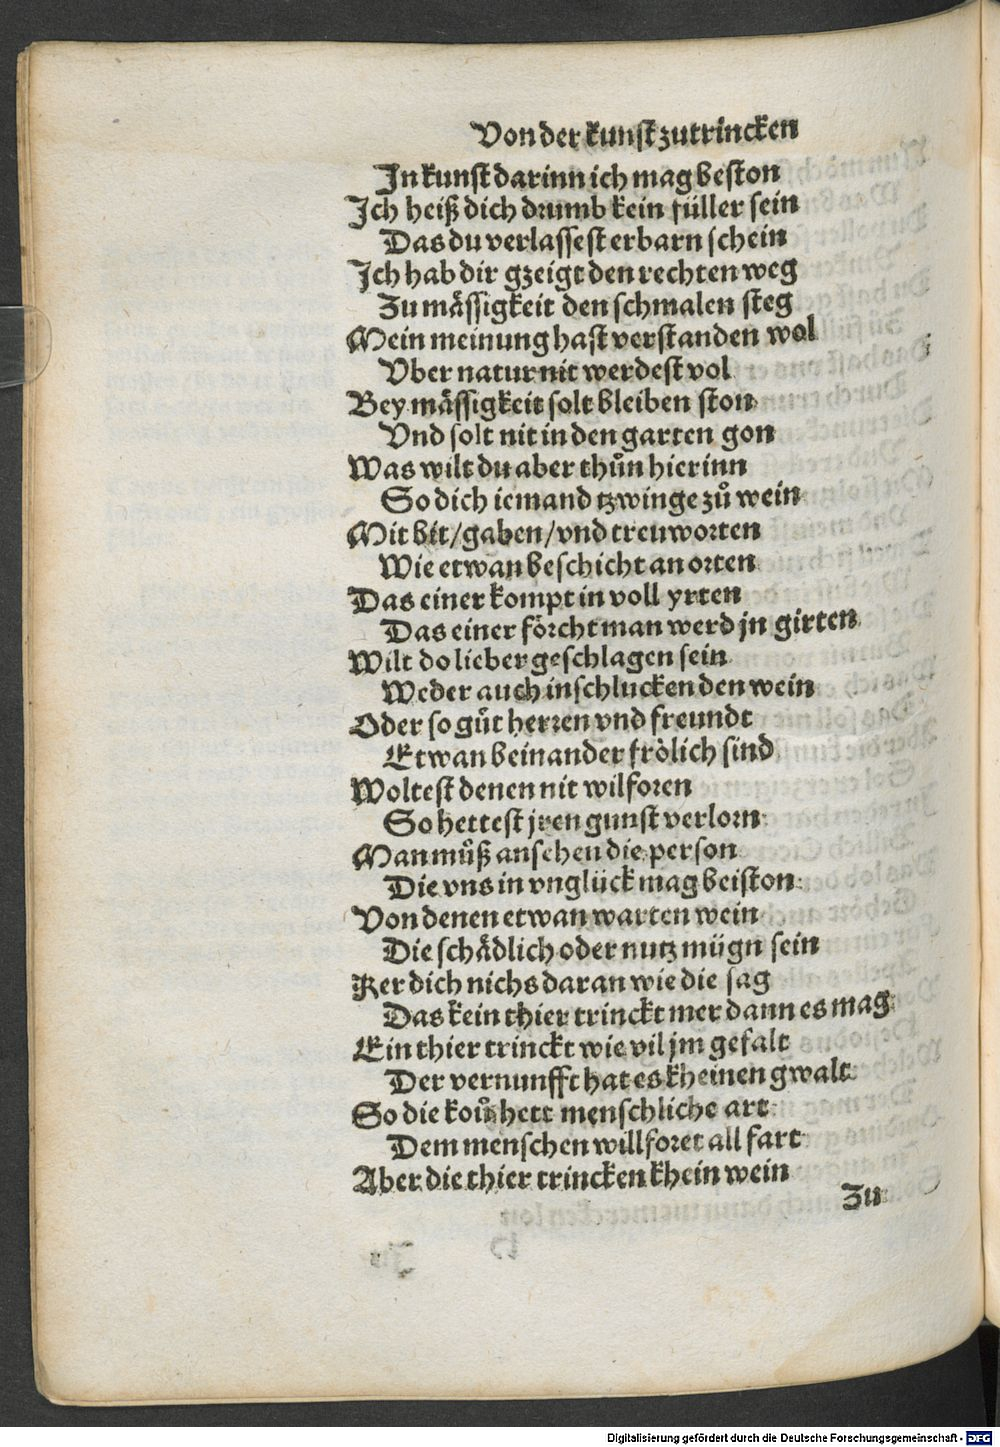 Von der kunst zutrincken
In kunst darinn ich mag beston
Ich heiß dich drumb kein füller sein
Das du verlassest erbarn schein
Ich hab dir gzeigt den rechten weg
Zu mässigkeit den schmalen steg
Mein meinung hast verstanden wol
Vber natur nit werdest vol
Bey mässigkeit solt bleiben ston
Vnd solt nit in den garten gon
Was wilt du aber thůn hierinn
So dich iemand tzwinge zů wein
Mit bit/gaben/vnd treuworten
Wie etwan beschicht an orten
Das einer kompt in voll yrten
Das einer förcht man werd jn girten
Wilt do lieber geschlagen sein
Weder auch inschlucken den wein
Oder so gůt herren vnd freundt
Etwan beinander frölich sind
Woltest denen nit wilforen
So hettest jren gunst verlorn
Man můß ansehen die person
Die vns in vnglück mag beiston
Von denen etwan warten wein
Die schädlich oder nutz mügn sein
Ker dich nichs daran wie die sag
Das kein thier trinckt mer dann es mag
Ein thier trinckt wie vil jm gefalt
Der vernunfft hat es kheinen gwalt
So die koů hett menschliche art
Dem menschen willforet all fart
Aber die thier trincken khein wein
Zu
Digitalisierung gefördert durch die Deutsche Forschungsgemeinschaft - DFG